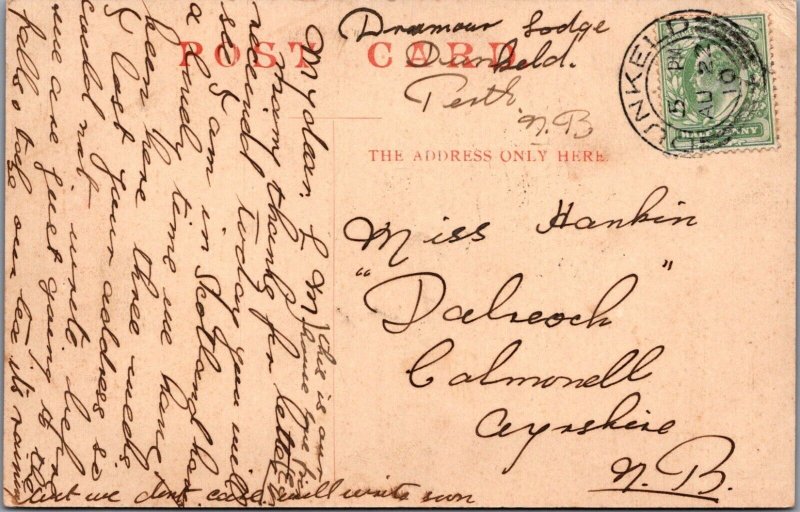 Drumour Lodge
Dunkeld.
Perth
N.B
POST CARD
THE ADDRESS ONLY HERE
DUNKELD
5 PM
AU 22
10
HALFPENNY
Miss Hankin
"Dalreoch"
Colmonell
Ayrshire
N.B.
My dear L M
Many thanks for letter
received today you will
see I am in Scotland having
a lovely time we have
been here three weeks
& lost your address so
could not write before
we are just going to the
falls, to have our tea its raining
but we dont care will write soon
this is our